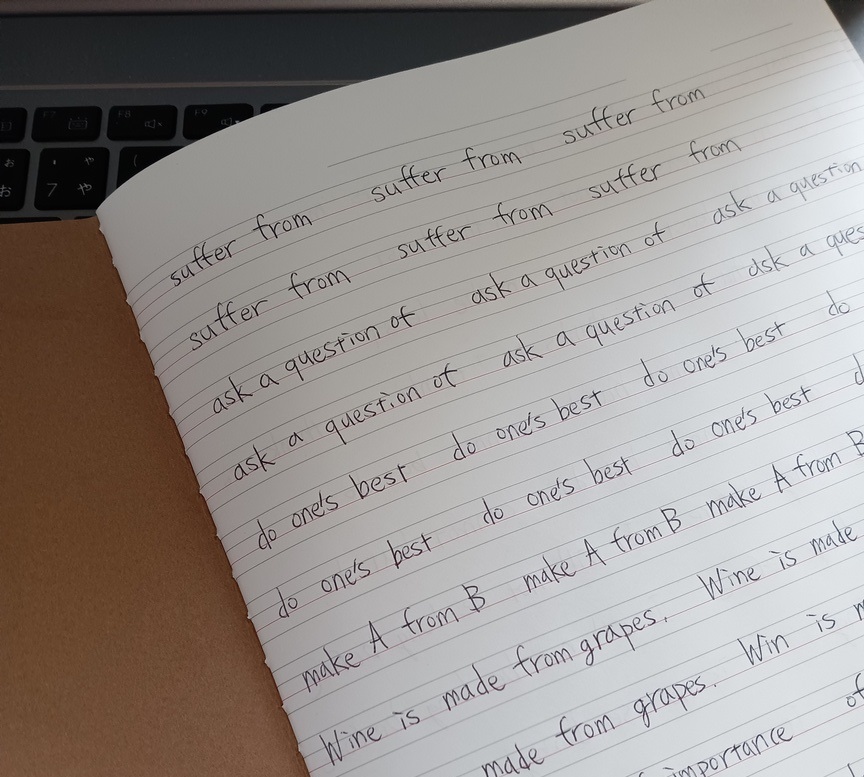 F7
F8
F9
お
や
7
や
お
(
suffer from suffer from suffer from
suffer from suffer from suffer from suffer from
ask a question of ask a question of ask a question
ask a question of ask a question of ask a
do one's best do one's best do one's best do
do one's best do one's best do one's best
make A from B make A from B make A from B
Wine is made from grapes. Wine is made
made from grapes. Win is
importance of